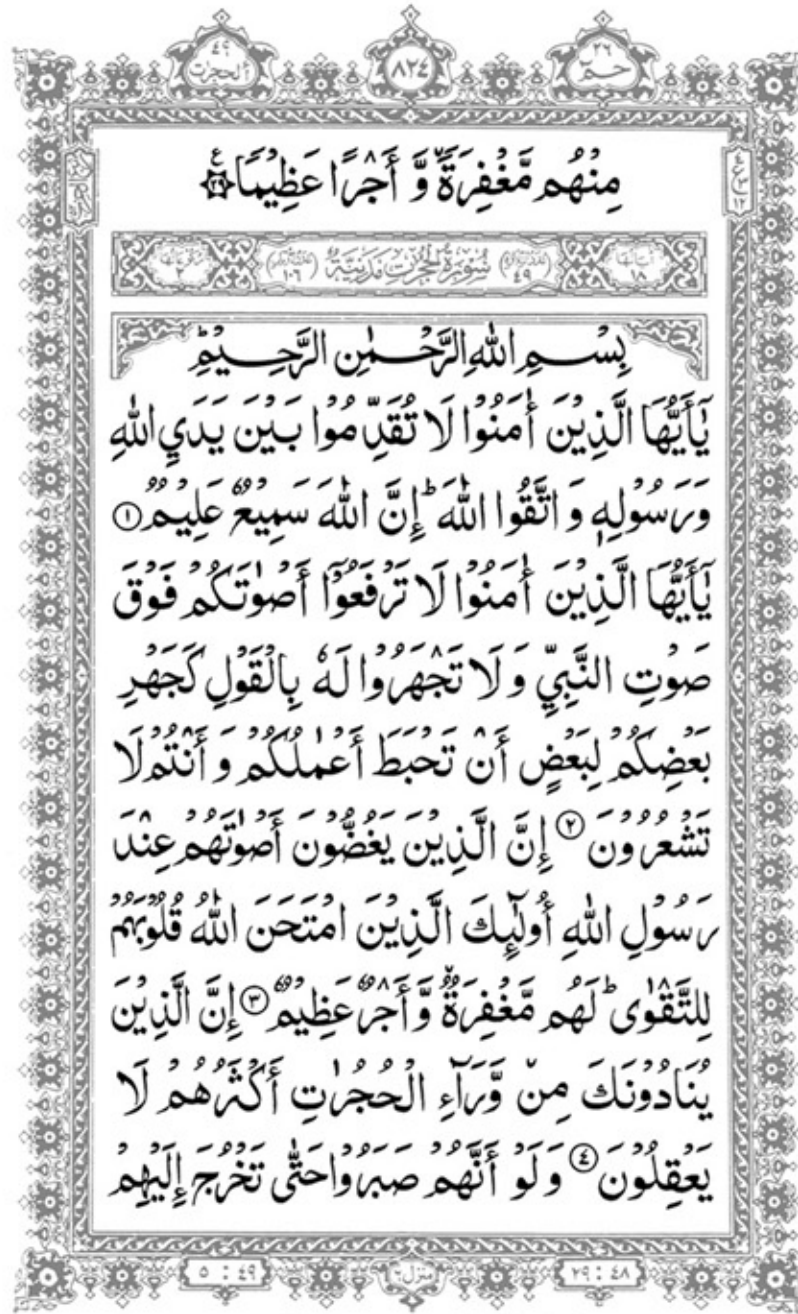 ٢٦
حٰمٓ
٨٢٤
٤٩
الحجرت
مِنْهُم مَّغْفِرَةً وَّ أَجْرًا عَظِيْمًا ٢٩
ع
٤
٣
١٢
اٰيَاتُهَا ١٨
٤٩
سُوْرَةُ الْحُجُرٰتِ مَدَنِيَّةٌ
١٠٦
رُكُوْعَاتُهَا ٢
بِسْمِ اللهِ الرَّحْمٰنِ الرَّحِيْمِ ط
يٰٓأَيُّهَا الَّذِيْنَ أٰمَنُوْا لَا تُقَدِّمُوْا بَيْنَ يَدَيِ اللهِ
وَرَسُوْلِهٖ وَ اتَّقُوا اللهَ ط إِنَّ اللهَ سَمِيْعٌ عَلِيْمٌ ١
يٰٓأَيُّهَا الَّذِيْنَ أٰمَنُوْا لَا تَرْفَعُوْٓا أَصْوٰتَكُمْ فَوْقَ
صَوْتِ النَّبِيِّ وَ لَا تَجْهَرُوْا لَهٗ بِالْقَوْلِ كَجَهْرِ
بَعْضِكُمْ لِبَعْضٍ أَنْ تَحْبَطَ أَعْمٰلُكُمْ وَ أَنْتُمْ لَا
تَشْعُرُوْنَ ٢ إِنَّ الَّذِيْنَ يَغُضُّوْنَ أَصْوٰتَهُمْ عِنْدَ
رَسُوْلِ اللهِ أُولٰٓئِكَ الَّذِيْنَ امْتَحَنَ اللهُ قُلُوْبَهُمْ
لِلتَّقْوٰى ط لَهُم مَّغْفِرَةٌ وَّ أَجْرٌ عَظِيْمٌ ٣ إِنَّ الَّذِيْنَ
يُنَادُوْنَكَ مِنْ وَّرَآءِ الْحُجُرٰتِ أَكْثَرُهُمْ لَا
يَعْقِلُوْنَ ٤ وَ لَوْ أَنَّهُمْ صَبَرُوْا حَتّٰى تَخْرُجَ إِلَيْهِمْ
٢٩ : ٤٨
منزل ٦
٥ : ٤٩